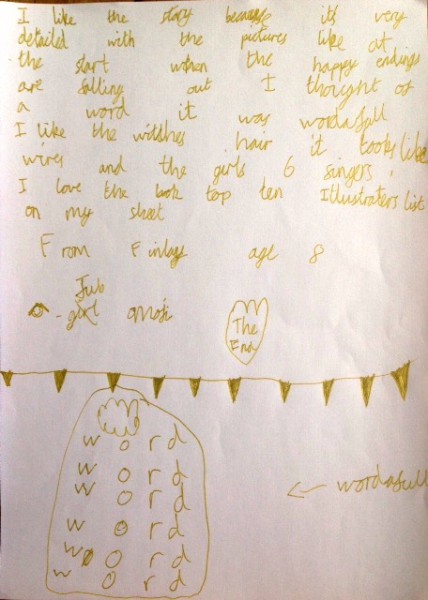 I like the story because it's very
detailed with the pictures like at
the start when the happy endings
are falling out I thought of
a word it was wordafall
I like the witches hair it looks like
wires and the girls 6 singers.
I love the book top ten Illustraters list
on my sheet
From Finlay age 8
girl
The
End
word
word
word
word
word
word
← wordafull